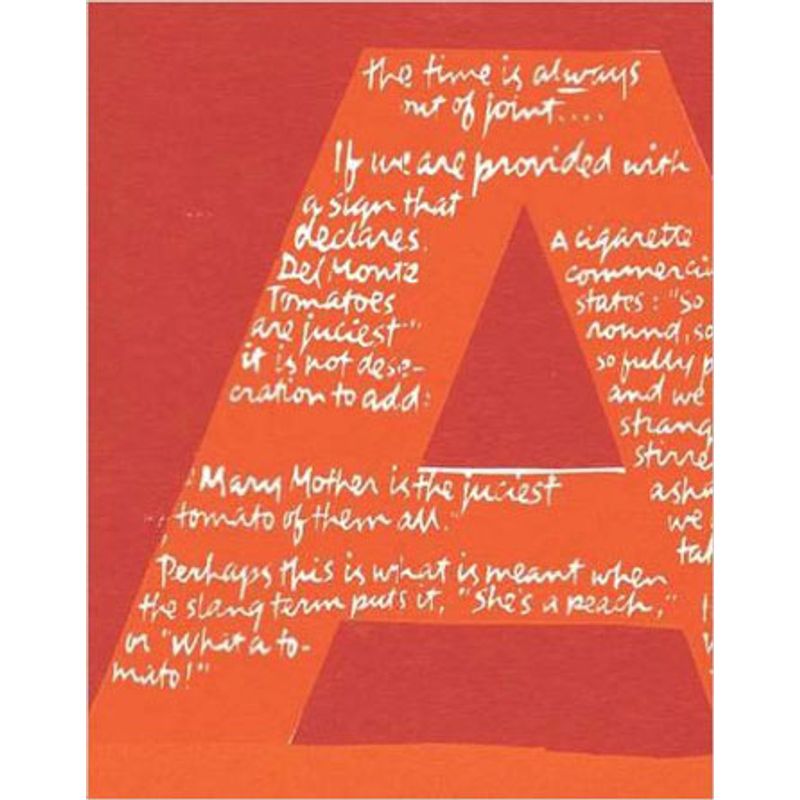 the time is always
out of joint....
If we are provided with
a sign that
declares
Del Monte
Tomatoes
are juciest"
it is not dese-
cration to add:
"Mary Mother is the juciest
tomato of them all."
Perhaps this is what is meant when
the slang term puts it, "She's a peach,"
or "what a to-
mato!"
A cigarette
commerci
states: "so
round, so
so fully p
and we
strang
stirre
asha
we
tal